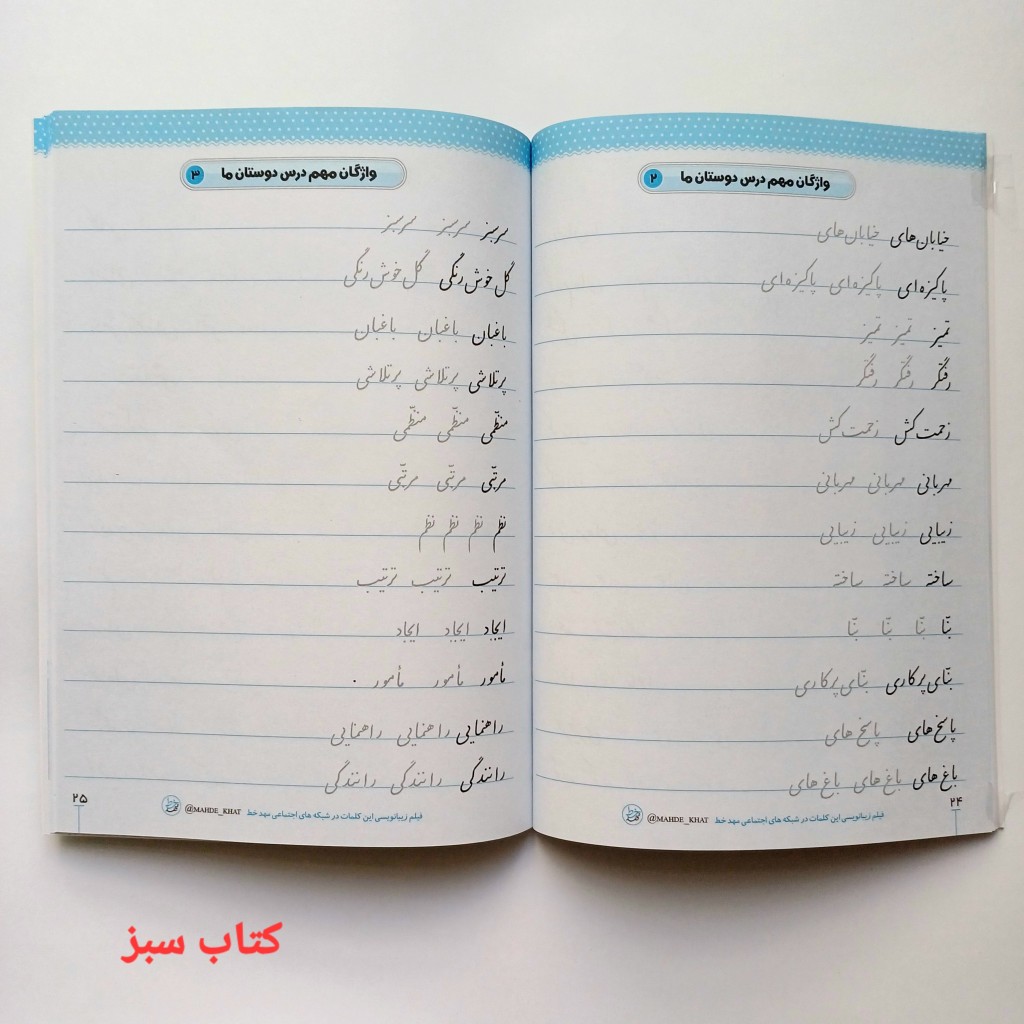 واژگان مهم درس دوستان ما ۲
خیابان‌های خیابان‌های
پاکیزه‌ای پاکیزه‌ای پاکیزه‌ای
تمیز تمیز تمیز
رفتگر رفتگر رفتگر
زحمت‌کش زحمت‌کش
مهربانی مهربانی مهربانی
زیبایی زیبایی زیبایی
ساخته ساخته ساخته
بنّا بنّا بنّا بنّا
بنّای پرکاری بنّای پرکاری
پاسخ‌های پاسخ‌های
باغ‌های باغ‌های باغ‌های
۲۴
فیلم زیبانویسی این کلمات در شبکه های اجتماعی مهد خط @MAHDE_KHAT
واژگان مهم درس دوستان ما ۳
سرسبز سرسبز سرسبز
گل خوش رنگی گل خوش رنگی
باغبان باغبان باغبان
پرتلاشی پرتلاشی پرتلاشی
منظّمی منظّمی منظّمی
مرتّبی مرتّبی مرتّبی
نظم نظم نظم نظم
ترتیب ترتیب ترتیب
ایجاد ایجاد ایجاد
مأمور مأمور مأمور
راهنمایی راهنمایی راهنمایی
رانندگی رانندگی رانندگی
فیلم زیبانویسی این کلمات در شبکه های اجتماعی مهد خط @MAHDE_KHAT
۲۵
کتاب سبز